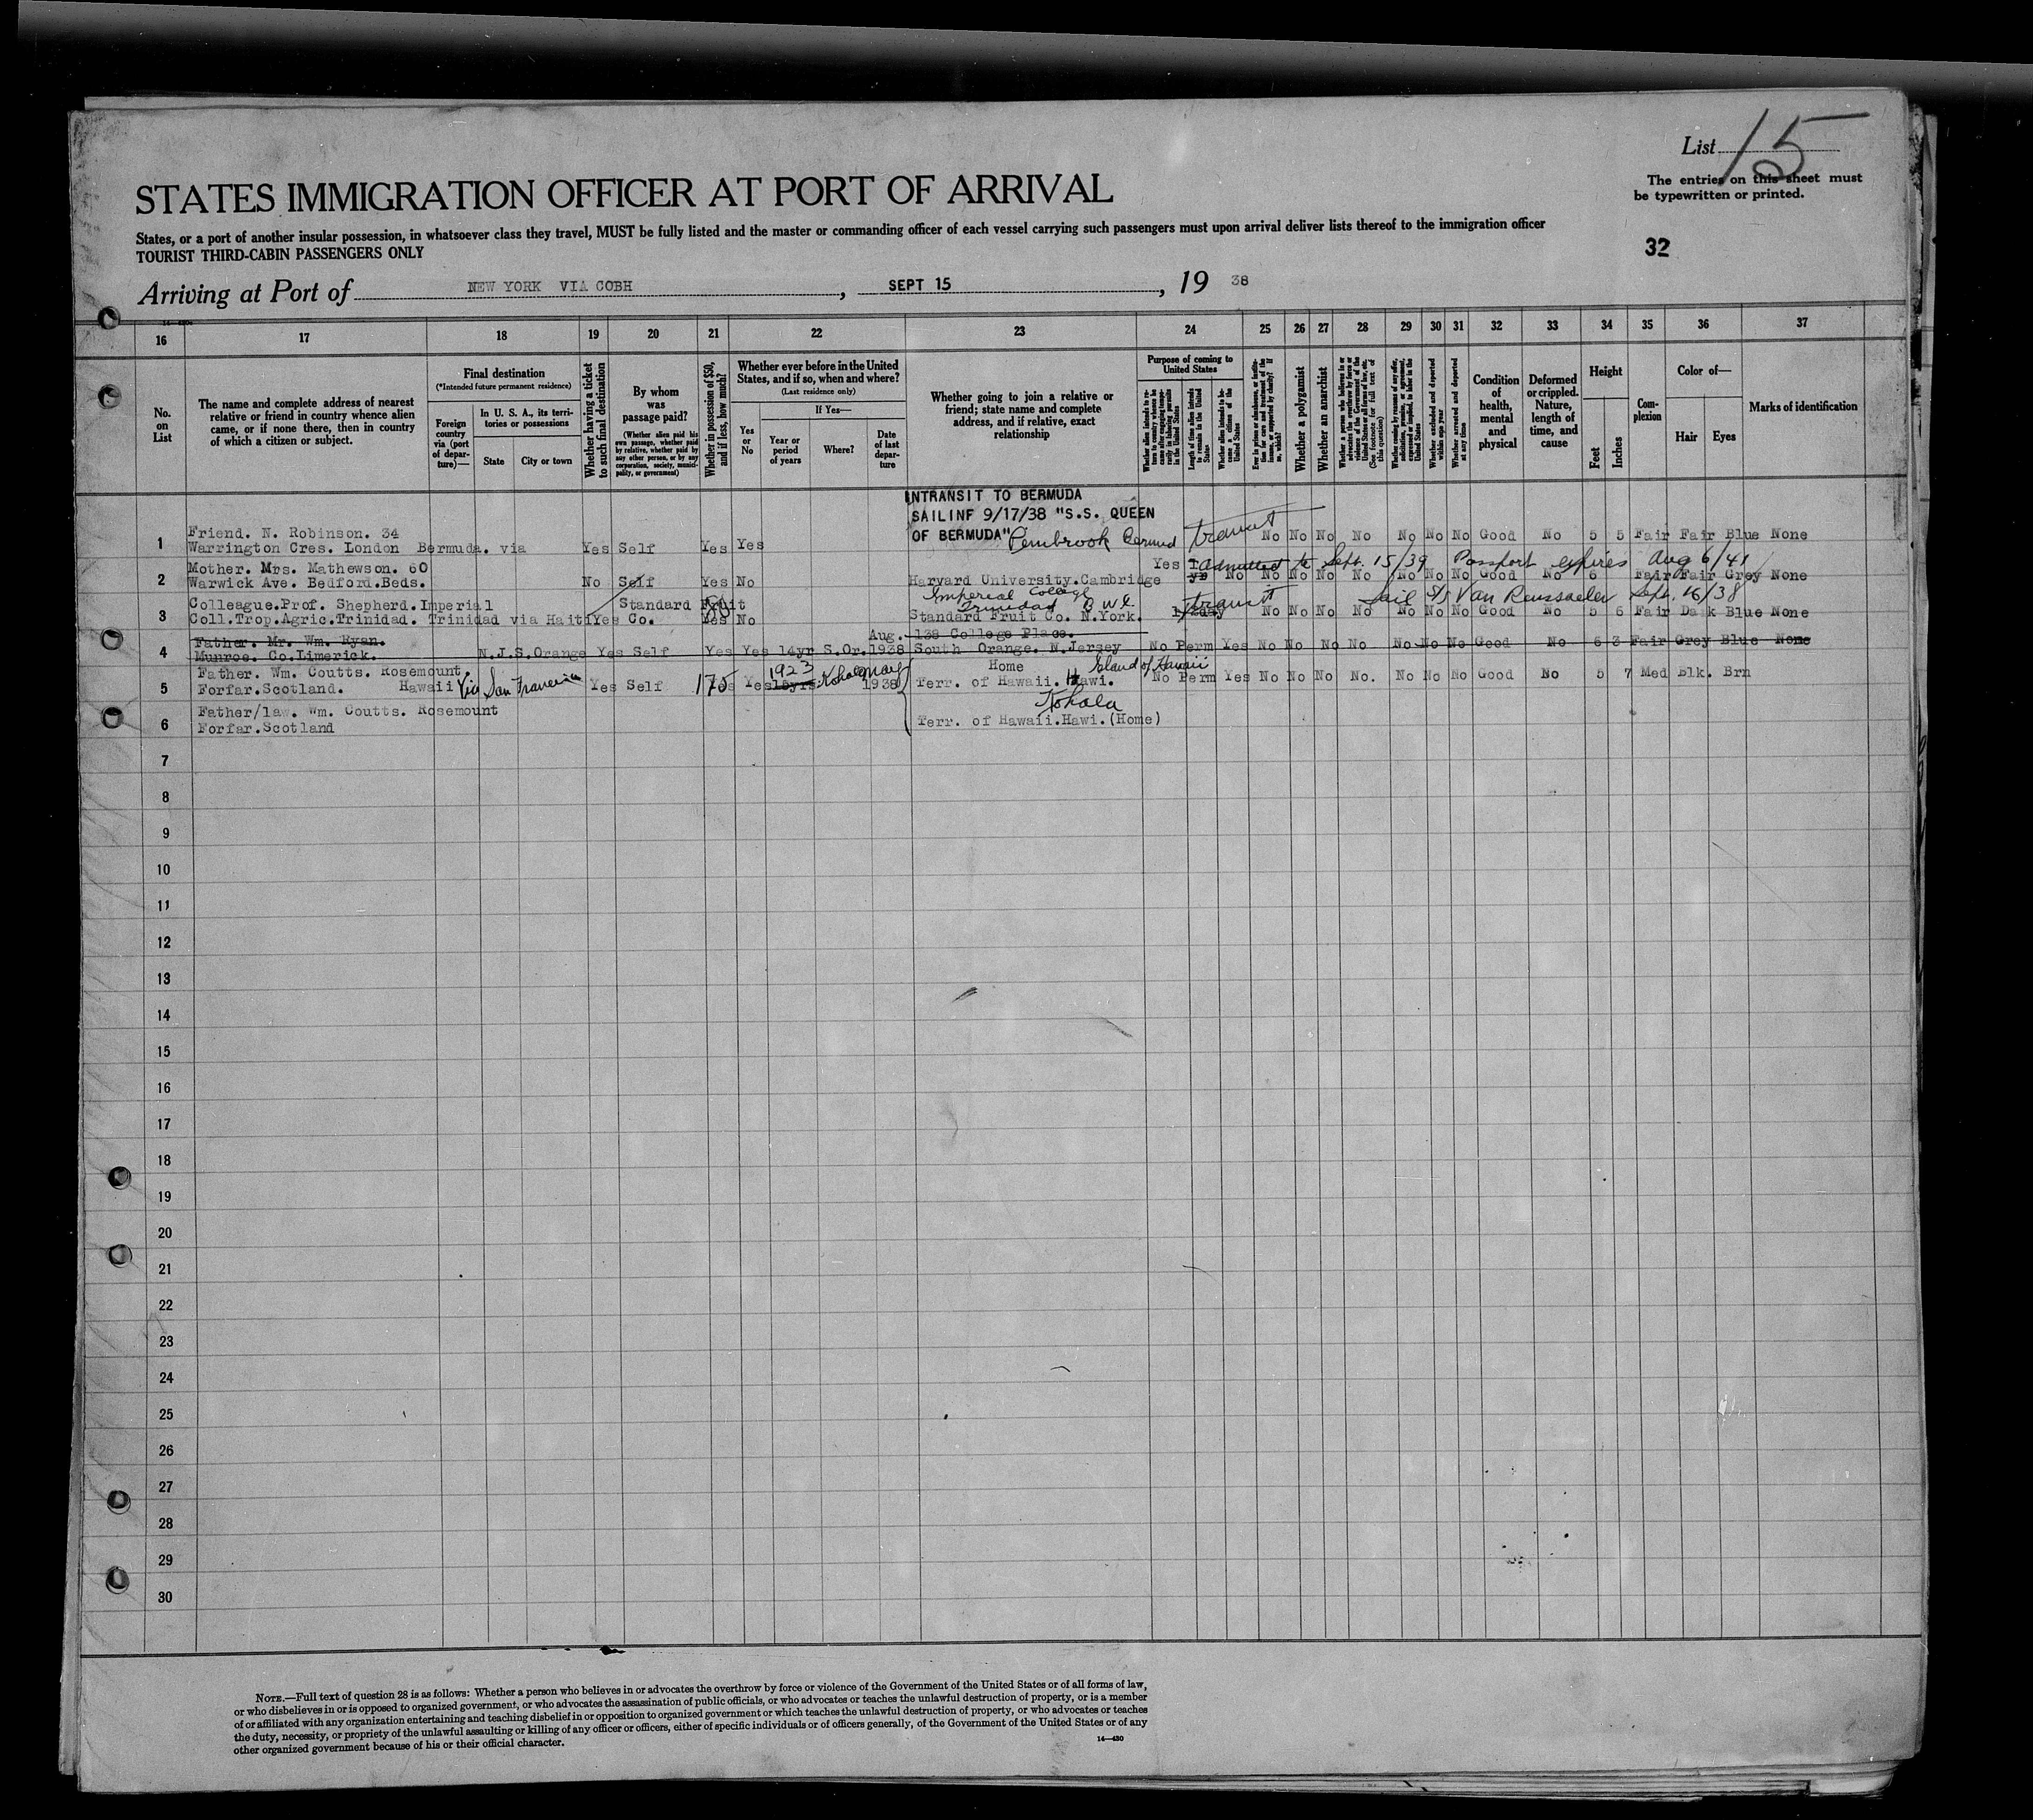 List 15
The entries on this sheet must
be typewritten or printed.
STATES IMMIGRATION OFFICER AT PORT OF ARRIVAL
States, or a port of another insular possession, in whatsoever class they travel, MUST be fully listed and the master or commanding officer of each vessel carrying such passengers must upon arrival deliver lists thereof to the immigration officer
TOURIST THIRD-CABIN PASSENGERS ONLY
32
Arriving at Port of NEW YORK VIA COBH, SEPT 15, 19 38
16 17 18 19 20 21 22 23 24 25 26 27 28 29 30 31 32 33 34 35 36 37
No. on List
The name and complete address of nearest relative or friend in country whence alien came, or if none there, then in country of which a citizen or subject.
Final destination
(*Intended future permanent residence)
Foreign country via (port of departure)—
In U. S. A., its territories or possessions
State
City or town
Whether having a ticket to such final destination
By whom was passage paid?
(Whether alien paid his own passage, whether paid by relative, whether paid by any other person, or by any corporation, society, municipality, or government)
Whether in possession of $50, and if less, how much?
Whether ever before in the United States, and if so, when and where?
(Last residence only)
Yes or No
If Yes—
Year or period of years
Where?
Date of last departure
Whether going to join a relative or friend; state name and complete address, and if relative, exact relationship
Purpose of coming to United States
Length of time alien intends to remain in the United States
Whether alien intends to become a citizen of the United States
Whether a polygamist
Whether an anarchist
Whether excluded and deported within one year
Whether arrested and deported at any time
Condition of health, mental and physical
Deformed or crippled. Nature, length of time, and cause
Height
Feet
Inches
Complexion
Color of—
Hair
Eyes
Marks of identification
INTRANSIT TO BERMUDA
SAILINF 9/17/38 "S.S. QUEEN
OF BERMUDA" Pembrook Bermud transit
Friend. N. Robinson. 34
1 Warrington Cres. London Bermuda. via Yes Self Yes Yes No No No No No No No Good No 5 5 Fair Fair Blue None
Mother. Mrs. Mathewson. 60 Yes 1 admitted to Sept. 15/39 Passport expires Aug 6/41
2 Warwick Ave. Bedford.Beds. No Self Yes No Harvard University.Cambridge yr No No No No No No No No Good No 6 Fair Fair Grey None
Imperial College
Trinidad B W I. transit Sail S/S Van Renssaeler Sept. 16/38
Colleague.Prof. Shepherd.Imperial Standard Fruit
3 Coll.Trop.Agric.Trinidad. Trinidad via Haiti Yes Co. Yes No Standard Fruit Co. N.York. 1 day No No No No No No No Good No 5 6 Fair Dark Blue None
Father. Mr. Wm. Ryan. Aug. 138 College Place.
4 Munroe. Co.Limerick. N.J.S.Orange Yes Self Yes Yes 14yr S.Or. 1938 South Orange. N.Jersey No Perm Yes No No No No No No No Good No 6 3 Fair Grey Blue None
Father. Wm. Coutts. Rosemount. 1923 Kohala May Home Island of Hawaii
5 Forfar.Scotland. Hawaii Via San Francisco Yes Self 175 Yes 15yrs. 1938 Terr. of Hawaii. Hawi. No Perm Yes No No No No. No No No Good No 5 7 Med Blk. Brn
Kohala
Father/law. Wm. Coutts. Rosemount
6 Forfar.Scotland Terr. of Hawaii.Hawi.(Home)
7
8
9
10
11
12
13
14
15
16
17
18
19
20
21
22
23
24
25
26
27
28
29
30
NOTE.—Full text of question 28 is as follows: Whether a person who believes in or advocates the overthrow by force or violence of the Government of the United States or of all forms of law,
or who disbelieves in or is opposed to organized government, or who advocates the assassination of public officials, or who advocates or teaches the unlawful destruction of property, or is a member
of or affiliated with any organization entertaining and teaching disbelief in or opposition to organized government or which teaches the unlawful destruction of property, or who advocates or teaches
the duty, necessity, or propriety of the unlawful assaulting or killing of any officer or officers, either of specific individuals or of officers generally, of the Government of the United States or of any
other organized government because of his or their official character.
14—430